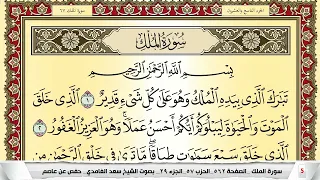 الجزء التاسع والعشرون
سورة الملك ٦٧
سُورَةُ الْمُلْكِ
بِسْمِ اللَّهِ الرَّحْمَٰنِ الرَّحِيمِ
تَبَٰرَكَ ٱلَّذِى بِيَدِهِ ٱلْمُلْكُ وَهُوَ عَلَىٰ كُلِّ شَىْءٍ قَدِيرٌ ١ ٱلَّذِى خَلَقَ
ٱلْمَوْتَ وَٱلْحَيَوٰةَ لِيَبْلُوَكُمْ أَيُّكُمْ أَحْسَنُ عَمَلًا وَهُوَ ٱلْعَزِيزُ ٱلْغَفُورُ ٢
ٱلَّذِى خَلَقَ سَبْعَ سَمَٰوَٰتٍ طِبَاقًا مَّا تَرَىٰ فِى خَلْقِ ٱلرَّحْمَٰنِ مِن
سورة الملك .. الصفحة ٥٦٢.. الحزب ٥٧.. الجزء ٢٩.. بصوت الشيخ سعد الغامدي.. حفص عن عاصم